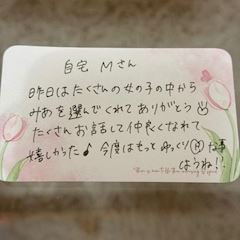 自宅 Mさん
昨日はたくさんの女の子の中から
みあを選んでくれてありがとう
たくさんお話して仲良くなれて
嬉しかった♪ 今度はもっとゆっくり㊙な事
しようね!!